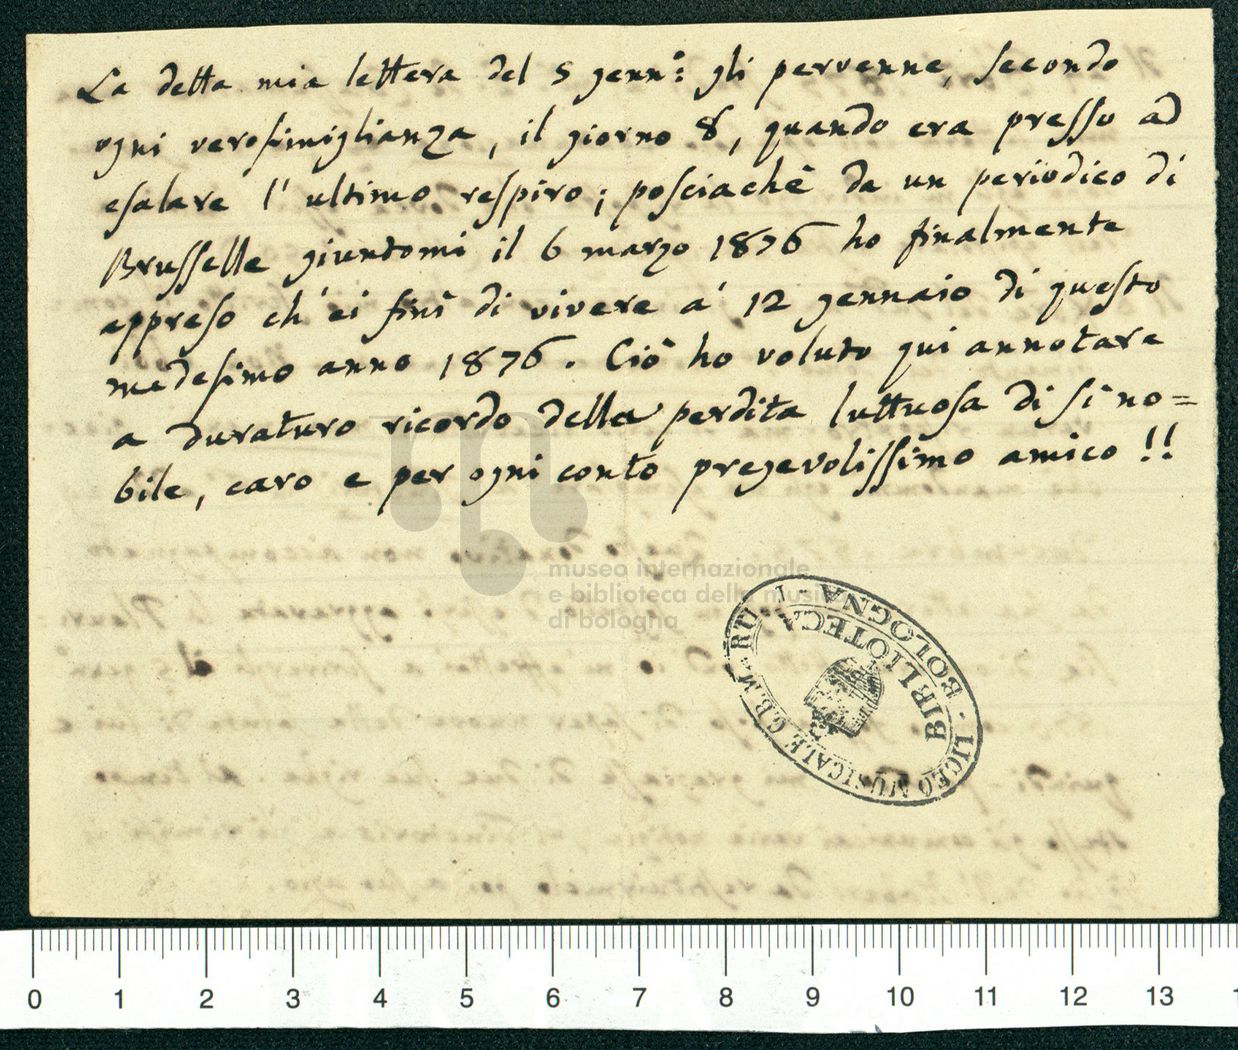 La detta mia lettera del 5 genn:° gli pervenne, secondo
ogni verosimiglianza, il giorno 8, quando era presso ad
esalare l'ultimo respiro; posciachè da un periodico di
Brusselle giuntomi il 6 marzo 1876 ho finalmente
appreso ch'ei finì di vivere a' 12 gennaio di questo
medesimo anno 1876. Ciò ho voluto qui annotare
a duraturo ricordo della perdita luttuosa di sì no=
bile, caro e per ogni conto pregevolissimo amico!!
museo internazionale
e biblioteca della musica
di bologna
LICEO MUSICALE G.B. MARTINI
BIBLIOTECA
BOLOGNA
0 1 2 3 4 5 6 7 8 9 10 11 12 13